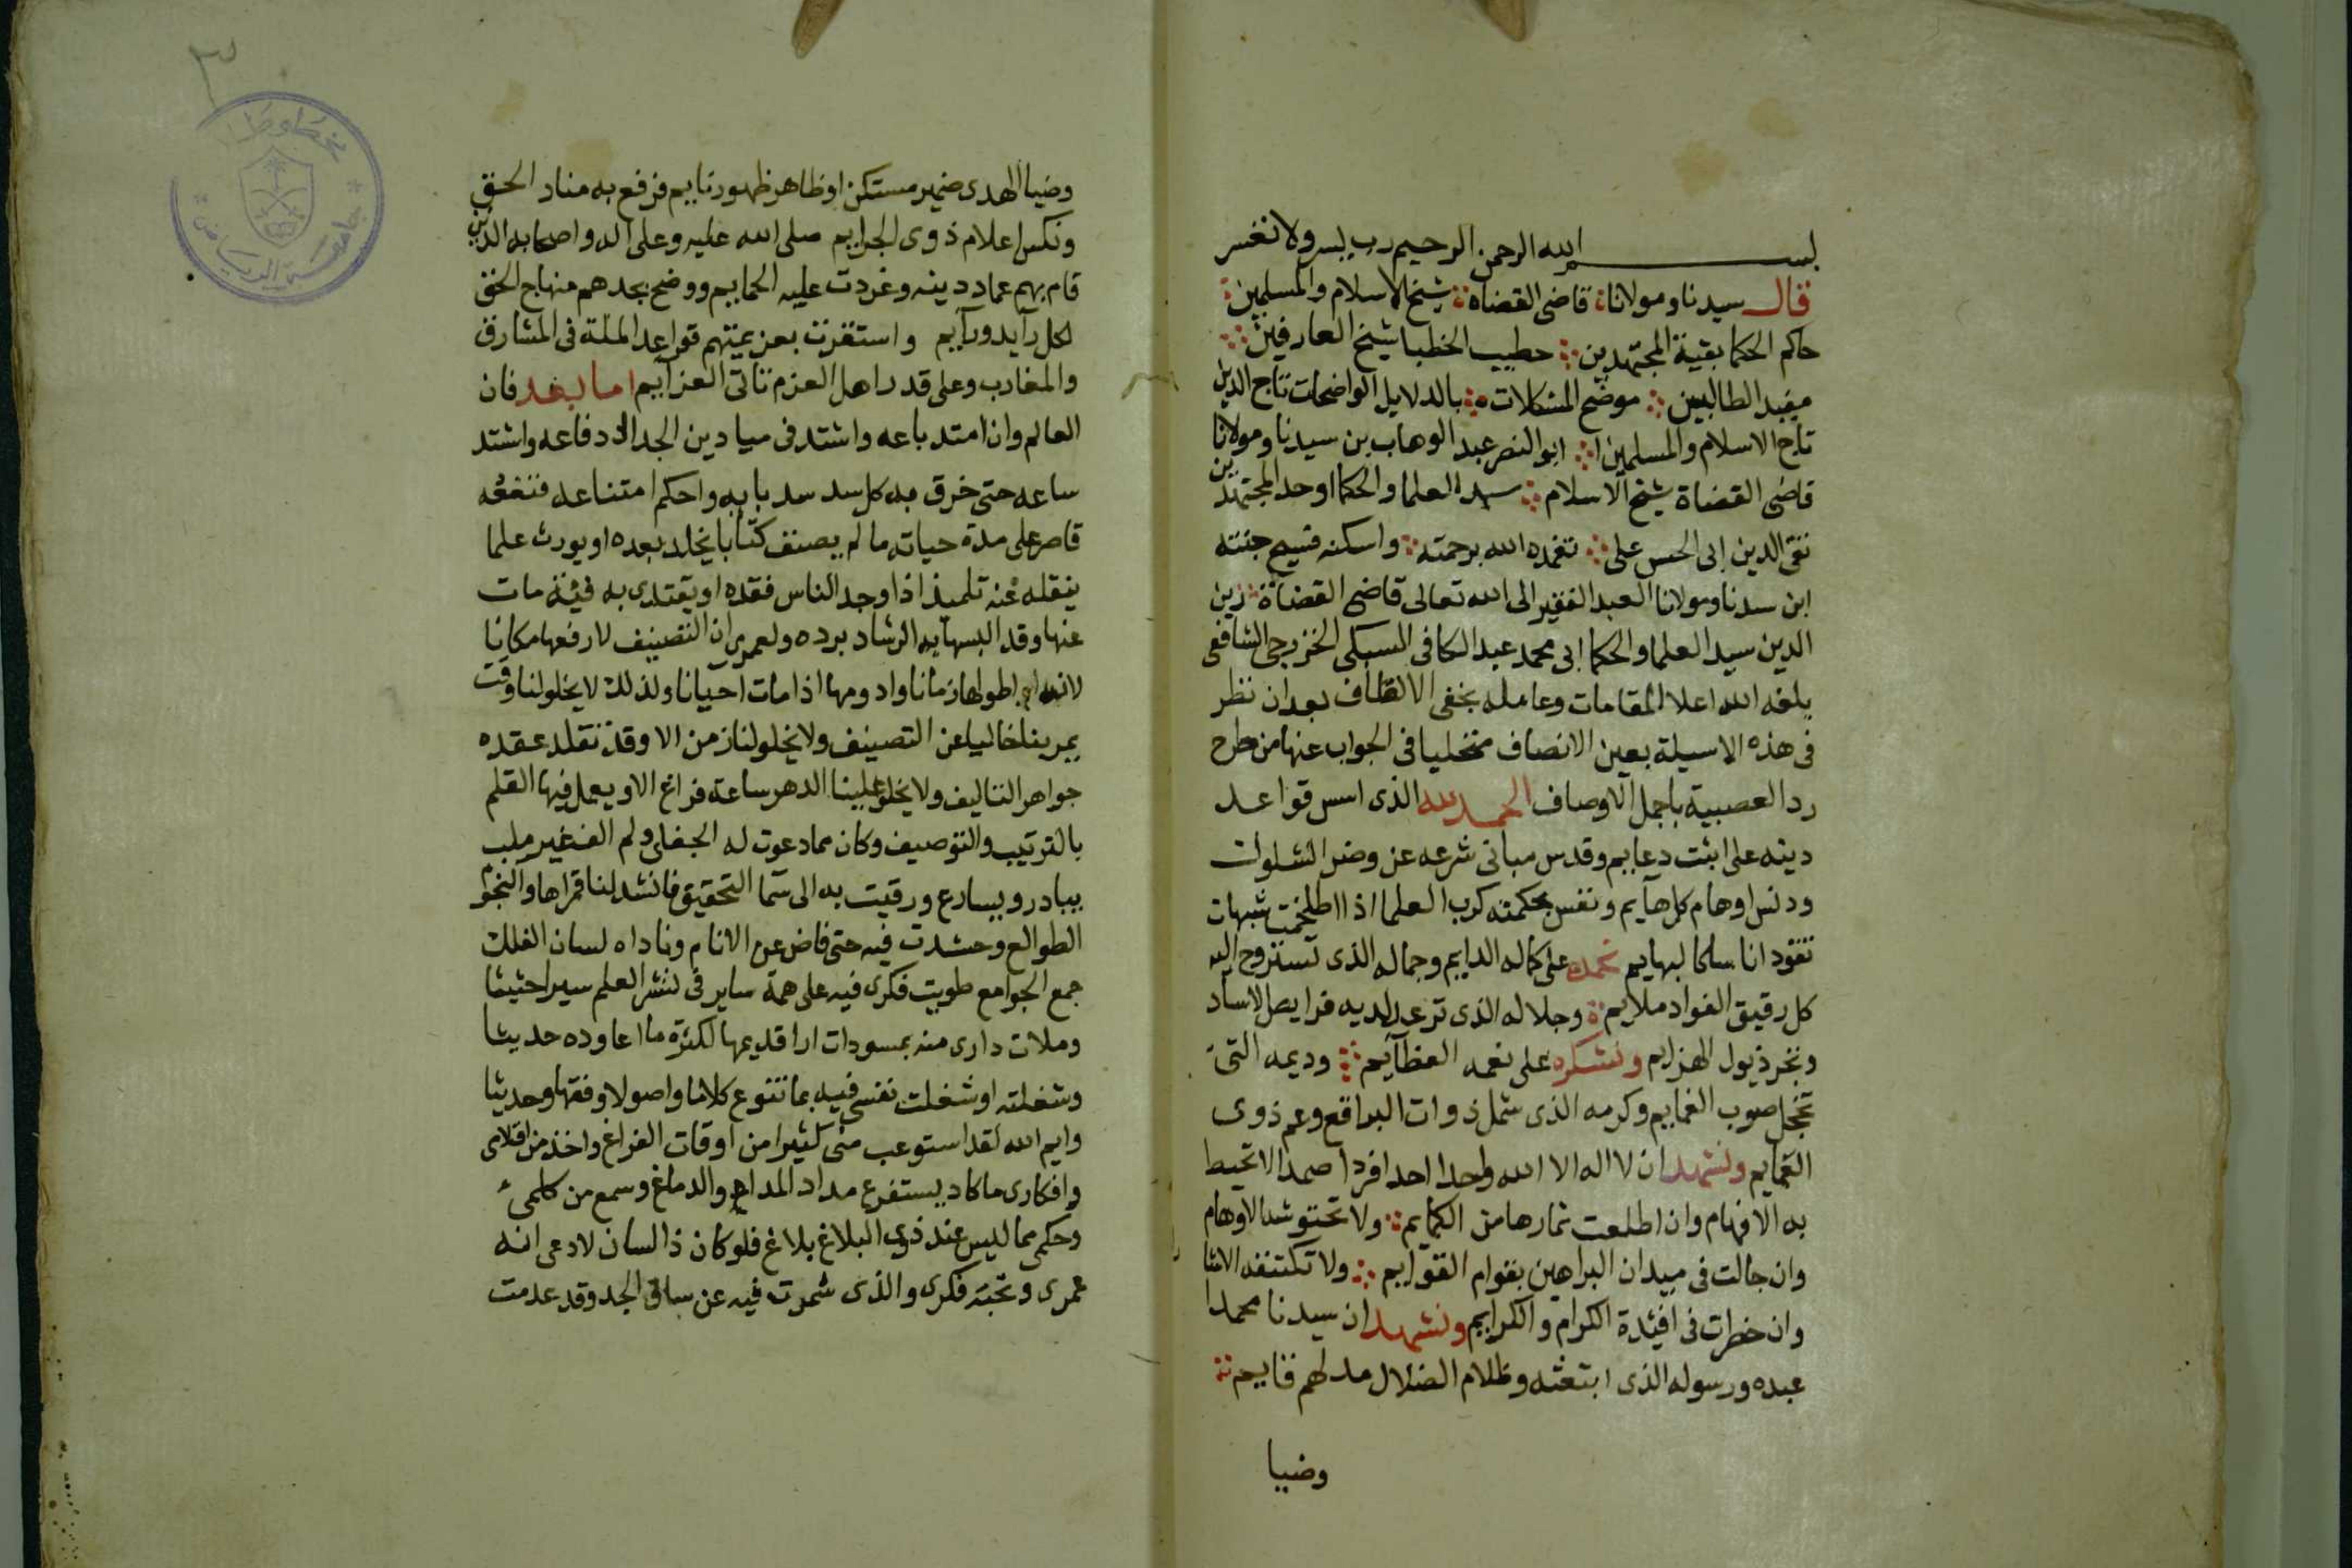 بسم الله الرحمن الرحيم رب يسر ولا تعسر
قال سيدنا ومولانا قاضى القضاه شيخ الاسلام والمسلمين
حاكم الحكما بقية المجتهدين خطيب الخطبا شيخ العارفين
مفيد الطالبين موضح المشكلات بالدلايل الواضحات تاج الدين
تاج الاسلام والمسلمين ابو النصر عبد الوهاب بن سيدنا ومولانا
قاضى القضاة شيخ الاسلام سيد العلما والحكما اوحد المجتهدين
تقى الدين ابى الحسن على تغمده الله برحمته واسكنه فسيح جنته
ابن سيدنا ومولانا العبد الفقير الى الله تعالى قاضى القضاة زين
الدين سيد العلما والحكما ابى محمد عبد الكافى السبكى الخزرجى الشافعى
بلغه الله اعلا المقامات وعامله بخفى الالطاف بعد ان نظر
فى هذه الاسيلة بعين الانصاف متخليا فى الجواب عنها من طرح
رد العصبية باجمل الاوصاف الحمد لله الذى اسس قواعد
دينه على اثبت دعايم وقدس مبانى شرعه عن وضر الشلوات
ودنس اوهام كل هايم ونفس بحكمته كرب العلما اذا اطلخمت شبهات
تقود اناسا كالبهايم نحمده على كماله الدايم وجماله الذى تستروح اليه
كل رقيق الفواد ملايم وجلاله الذى ترعد لديه فرايص الاساد
وتجر ذيول الهزايم ونشكره على نعمه العظايم وديمه التى
تخجل صوب الغمايم وكرمه الذى شمل ذوات البراقع وعم ذوى
العمايم ونشهد ان لا اله الا الله واحدا احدا فردا صمدا لا تحيط
به الافهام وان اطلعت ثمارها من الكمايم ولا تحتوشه الاوهام
وان جالت فى ميدان البراهين بقوام القوايم ولا تكتنفه الاثنا
وان خطرت فى افيدة الكرام والكرايم ونشهد ان سيدنا محمدا
عبده ورسوله الذى ابتعثه وظلام الضلال مدلهم قايم
وضيا
وضيا الهدى ضمير مستكن او ظاهر ظهور نايم فرفع به منار الحق
ونكس اعلام ذوى الجرايم صلى الله عليه وعلى اله واصحابه الذين
قام بهم عماد دينه وغردت عليه الحمايم ووضح بجدهم منهاج الحق
لكل رايد ورايم واستقرت بعزيمتهم قواعد الملة فى المشارق
والمغارب وعلى قدر اهل العزم تاتى العزايم اما بعد فان
العالم وان امتد باعه واشتد فى ميادين الجدال دفاعه واشتد
ساعه حتى خرق به كل سد سد بابه واحكم امتناعه فنفعه
قاصر على مدة حياته ما لم يصنف كتابا يخلد بعده او يورث علما
ينقله عنه تلميذ اذا وجد الناس فقده او يقتدى به فية مات
عنها وقد البسها به الرشاد برده ولعمرى ان التصنيف لارفعها مكانا
لانه اطولها زمانا وادومها اذا مات احيانا ولذلك لا يخلو لنا وقت
يمر بنا خاليا عن التصنيف ولا يخلو لنا زمن الا وقد تقلد عقده
جواهر التاليف ولا يخلو علينا الدهر ساعة فراغ الا ويعمل فيها القلم
بالترتيب والتوصيف وكان مما دعوت له الجفلى ولم الف غير ملب
يبادر ويسارع ورقيت به الى سما التحقيق فانشد لنا قمراها والنجوم
الطوالع وحشدت فيه حتى فاض عن الانام وناداه لسان الفلك
جمع الجوامع طويت فكرى فيه على همة ساير فى نشر العلم سيرا حثيثا
وملات دارى منه بمسودات ارا قديمها لكثرة ما اعاوده حديثا
وشغلته او شغلت نفسى فيه بما تنوع كلاما واصولا وفقها وحديثا
وايم الله لقد استوعب منى كثيرا من اوقات الفراغ واخذ من اقلامى
وافكارى ما كاد يستفرغ مداد المداد والدماغ وسمع من كلمى
وحكمى مما ليس عند ذوى البلاغ بلاغ فلو كان ذا لسان لادعى انه
عمرى ونخبة فكرى والذى شمرت فيه عن ساق الجد وقد عدمت
٣
مخطوطات
جامعة الرياض